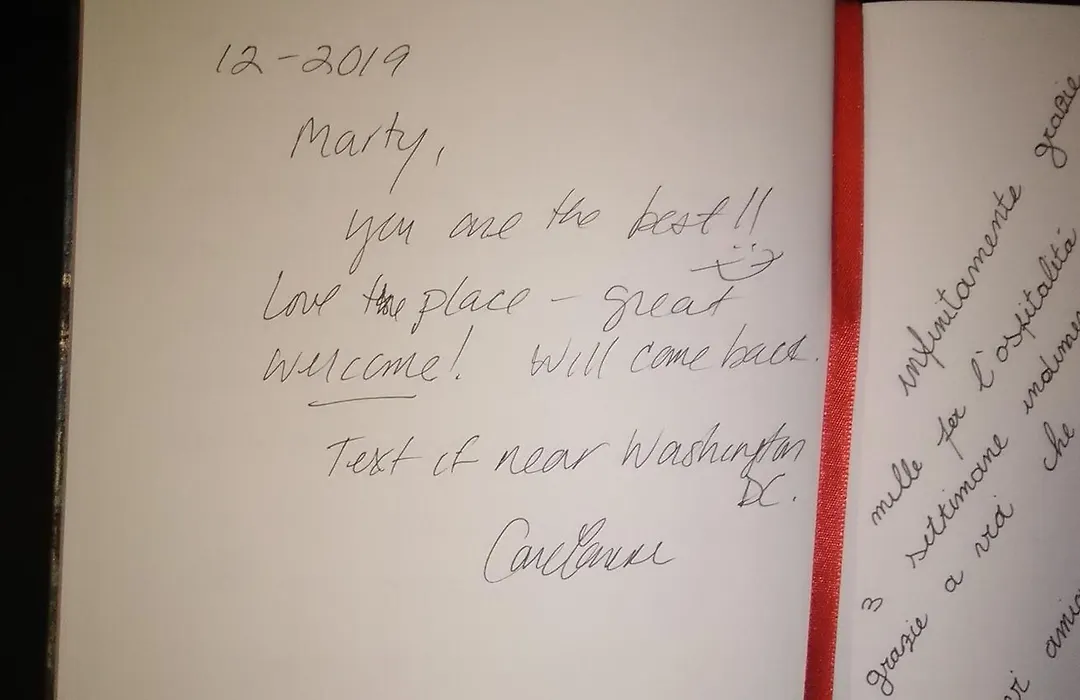 12-2019
Marty,
you are the best!!
Love the place - great
welcome! Will come back.
Text if near Washington
DC.
grazie
infinitamente
mille per l'ospitalità
3 settimane
grazie a voi che